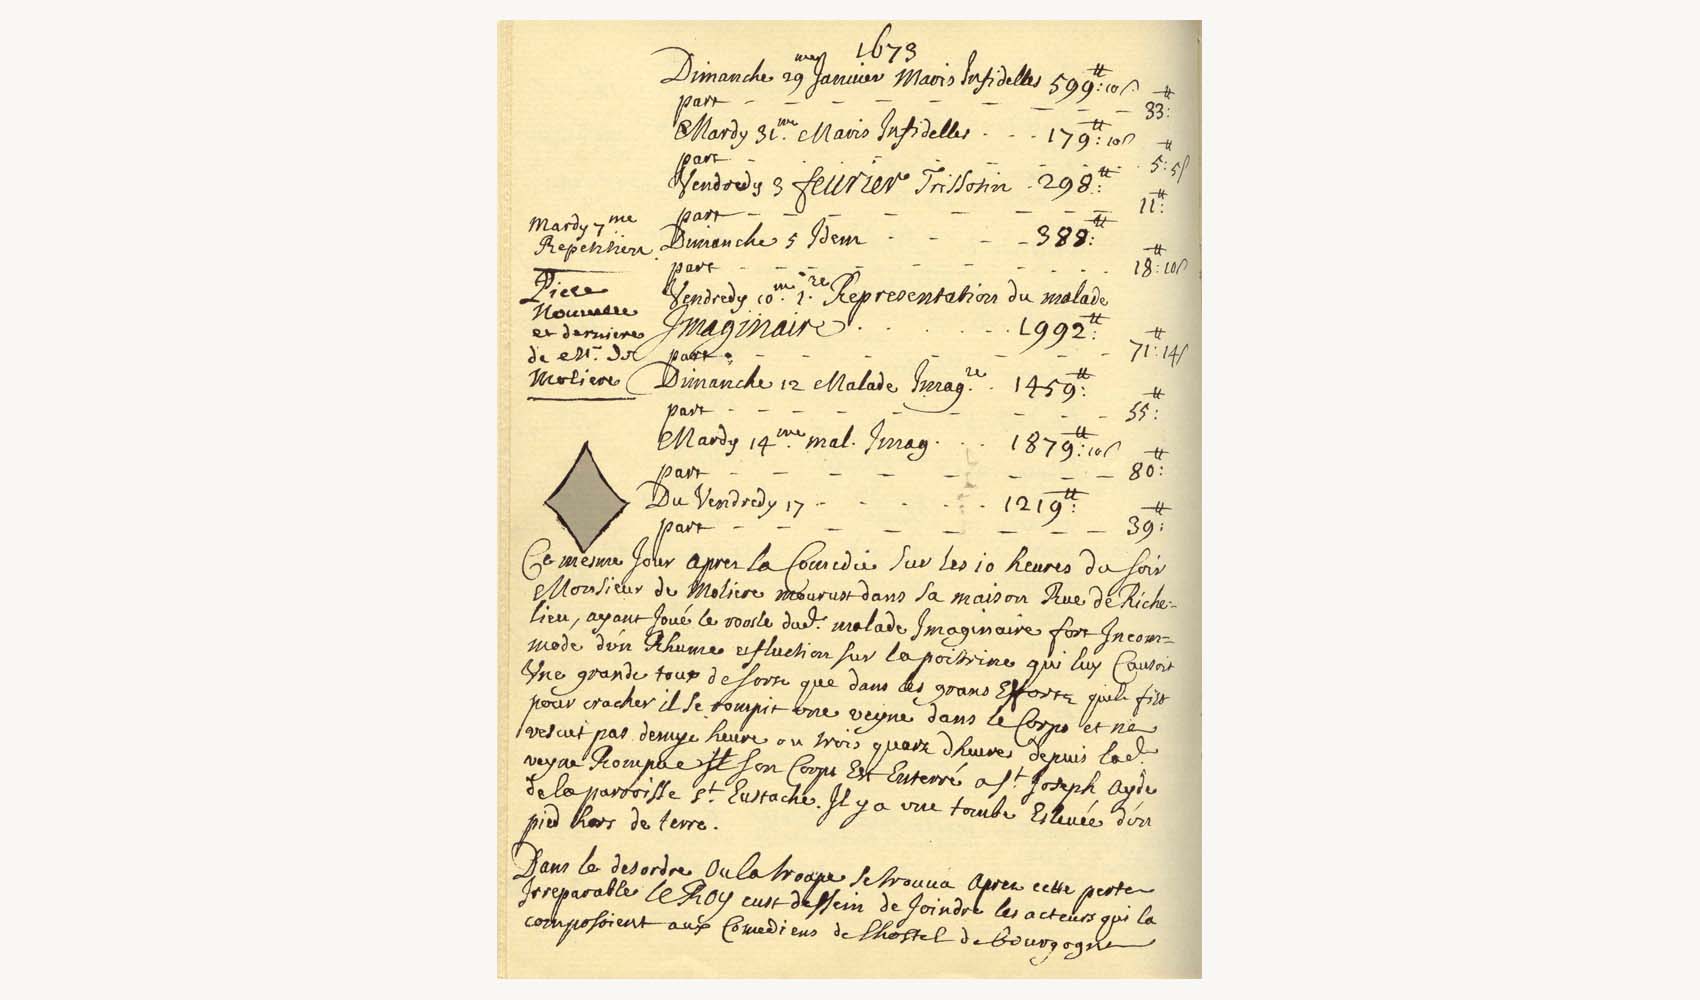 1673
Dimanche 29me Janvier Maris Infidelles 599tt: 10s
part 33tt:
Mardy 31.me Maris Infidelles 179tt: 10s
part 5tt: 5s
Vendredy 3 feurier Trissotin 298tt:
part 11tt:
Dimanche 5 Idem 388tt:
part 18tt: 10s
Mardy 7me
Repetition.
Vendredy 10.me 1.re Representation du malade
Imaginaire 1992tt:
part 71tt: 14s
Piece
Nouuelle
et derniere
de Mr. de
Moliere
Dimanche 12 Malade Imag.re 1459tt:
part 55tt:
Mardy 14me. mal. Imag. 1879tt: 10s
part 80tt:
Du Vendredy 17 1219tt:
part 39tt:
Ce mesme Jour apres la Comedie sur les 10 heures du soir
Monsieur de Moliere mourust dans sa maison Rue de Riche-
lieu, ayant Joué le roosle dud. malade Imaginaire fort Incom=
modé d'un Rhume et fluction sur la poitrine qui luy Causoit
Vne grande toux de sorte que dans les grans Efforts quil fist
pour cracher il se rompit vne veyne dans le Corps et ne
vescut pas demye heure ou trois quarz dheure depuis lad.
veyne Rompue Son Corps Est Enterré a St Joseph ayde
de la parroisse St. Eustache. Il y a vne tombe Esleuée d'un
pied hors de terre.
Dans le desordre Ou la troupe se trouua Apres cette perte
Irreparable le Roy eust dessein de Joindre les acteurs qui la
composoient aux Comediens de lhostel de bourgogne